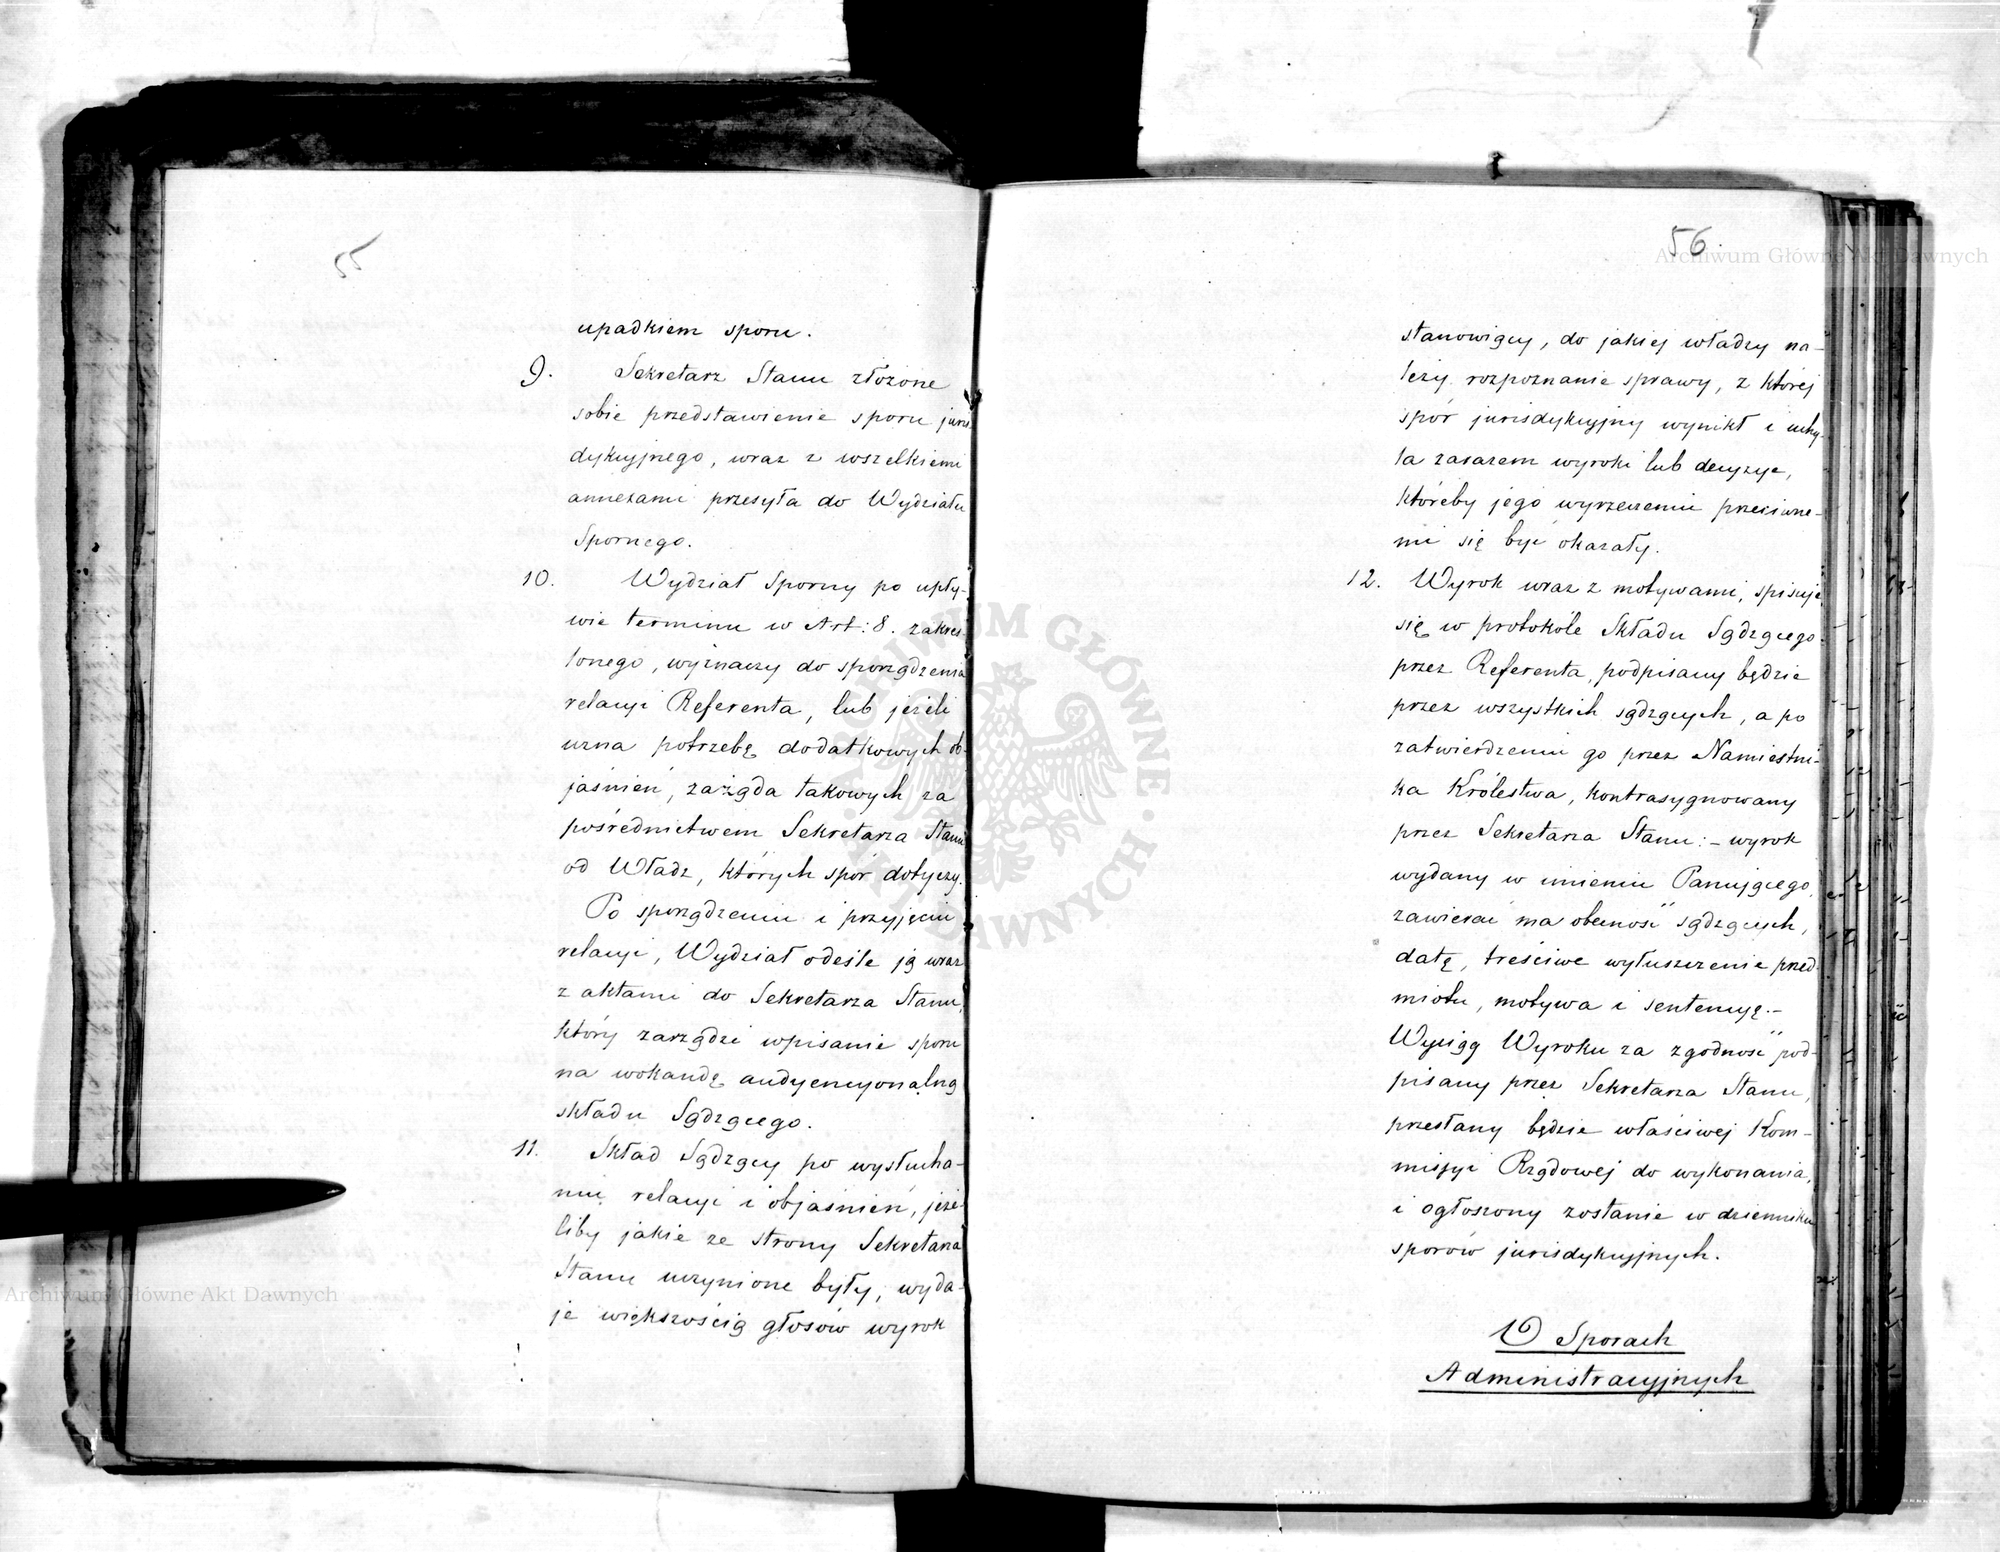 55
upadkiem sporu.
9. Sekretarz Stanu złożone
sobie przedstawienie sporu juris
dykcyjnego, wraz z wszelkiemi
annexami przesyła do Wydziału
Spornego.
10. Wydział Sporny po upły-
wie terminu w Art: 8. zakreś-
lonego, wyznaczy do sporządzenia
relacyi Referenta, lub jeżeli
uzna potrzebę dodatkowych ob-
jaśnień, zażąda takowych za
pośrednictwem Sekretarza Stanu
od Władz, których spór dotyczy.
Po sporządzeniu i przyjęciu
relacyi, Wydział odeśle ją wraz
z aktami do Sekretarza Stanu,
który zarządzi wpisanie sporu
na wokandę audyencyonalną
składu Sądzącego.
11. Skład Sądzący po wysłucha-
niu relacyi i objaśnień, jeże-
liby jakie ze strony Sekretarza
Stanu uczynione były, wyda-
je większością głosów wyrok
56
stanowiący, do jakiej władzy na-
leży rozpoznanie sprawy, z której
spór jurisdykcyjny wynikł i uchy-
la zarazem wyroki lub decyzye,
któreby jego wyrzeczeniu przeciwne-
mi się być okazały.
12. Wyrok wraz z motywami, spisuje
się w protokóle Składu Sądzącego
przez Referenta, podpisany będzie
przez wszystkich sądzących, a po
zatwierdzeniu go przez Namiestni-
ka Królestwa, kontrasygnowany
przez Sekretarza Stanu: – wyrok
wydany w imieniu Panującego,
zawierać ma obecność sądzących,
datę, treściwe wyłuszczenie przed-
miotu, motywa i sentencyę. –
Wyciąg Wyroku za zgodność pod-
pisany przez Sekretarza Stanu,
przesłany będzie właściwej Kom-
missyi Rządowej do wykonania,
i ogłoszony zostanie w dzienniku
sporów jurisdykcyjnych.
O Sporach
Administracyjnych
Archiwum Główne Akt Dawnych
Archiwum Główne Akt Dawnych
ARCHIWUM GŁÓWNE AKT DAWNYCH